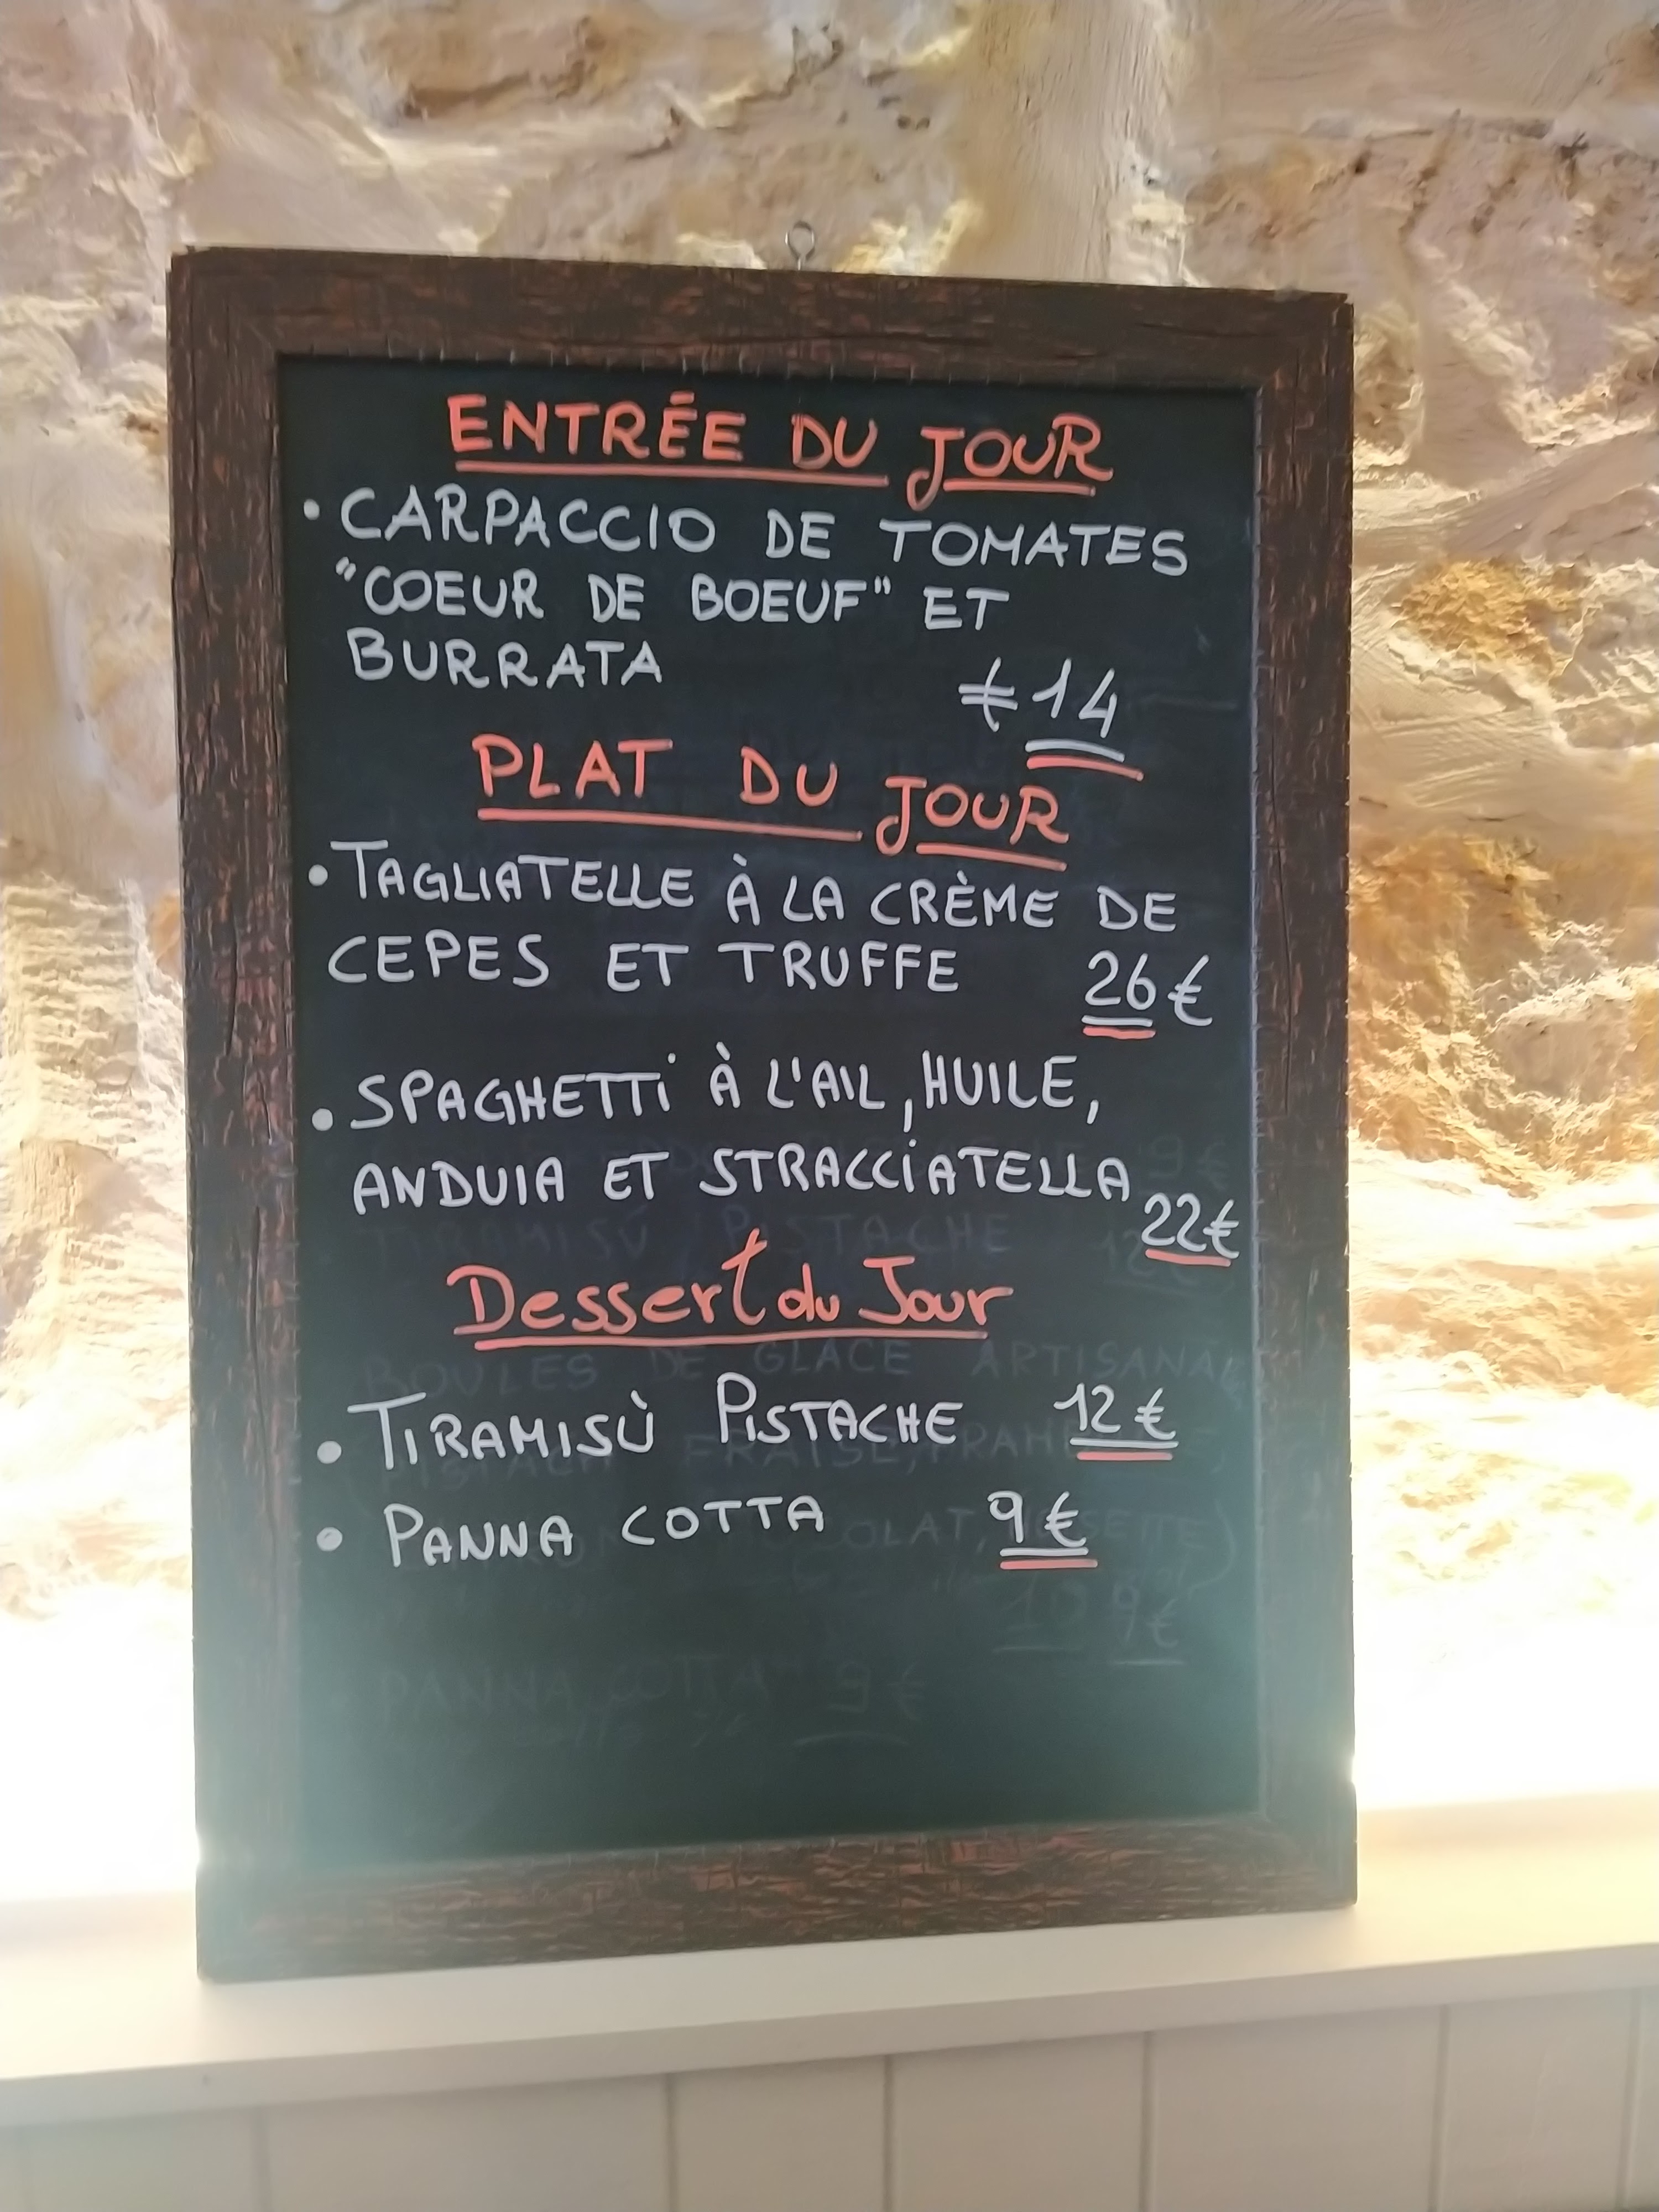 ENTRÉE DU JOUR
• CARPACCIO DE TOMATES
"COEUR DE BOEUF" ET
BURRATA €14
PLAT DU JOUR
• TAGLIATELLE À LA CRÈME DE
CEPES ET TRUFFE 26€
• SPAGHETTi À L'AIL, HUILE,
ANDUIA ET STRACCiATELLA 22€
Dessert du Jour
• TIRAMISÙ PISTACHE 12€
• PANNA COTTA 9€
PANNA COTTA 9€